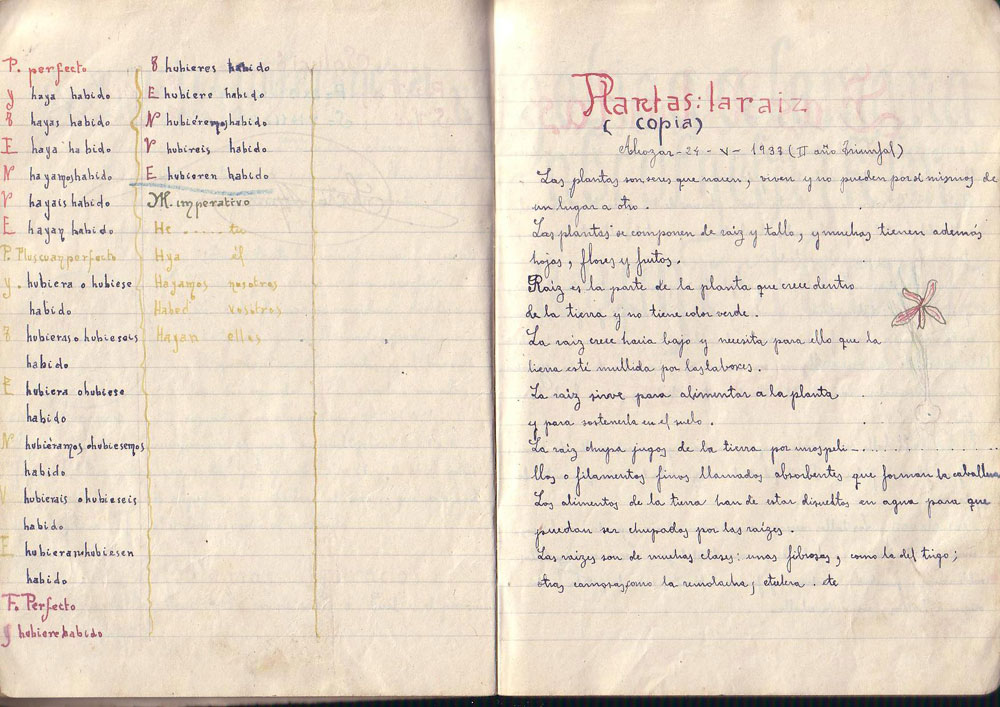 P. perfecto
y haya habido
T hayas habido
E haya habido
N hayamos habido
V hayais habido
E hayan habido
P. Pluscuanperfecto
y. hubiera o hubiese
habido
T hubieras o hubieseis
habido
E hubiera o hubiese
habido
N hubiéramos o hubiesemos
habido
V hubierais o hubieseis
habido
E hubieran o hubiesen
habido
F. Perfecto
y hubiere habido
T hubieres habido
E hubiere habido
N hubiéremos habido
V hubireis habido
E hubieren habido
M. imperativo
He ..... tu
Hya él
Hayamos nosotros
Habed vosotros
Hayan ellos
Plantas: la raiz
( copia)
24 - V - 1937 (II año Triunfal)
Las plantas son seres que nacen, viven y no pueden por si mismos de
un lugar a otro.
Las plantas se componen de raiz y tallo, y muchas tienen además
hojas, flores y frutos.
Raiz es la parte de la planta que crece dentro
de la tierra y no tiene color verde.
La raiz crece hacia bajo y necesita para ello que la
tierra esté mullida por las labores.
La raiz sirve para alimentar a la planta
y para sostenerla en el suelo.
La raiz chupa jugos de la tierra por unos peli-
llos o filamentos finos llamados absorbentes que forman la caballera
Los alimentos de la tierra han de estar disueltos en agua para que
puedan ser chupados por las raizes.
Las raizes son de muchas clases: unas fibrosas, como la del trigo;
otras carnosas, como la remolacha, etcetera. etc